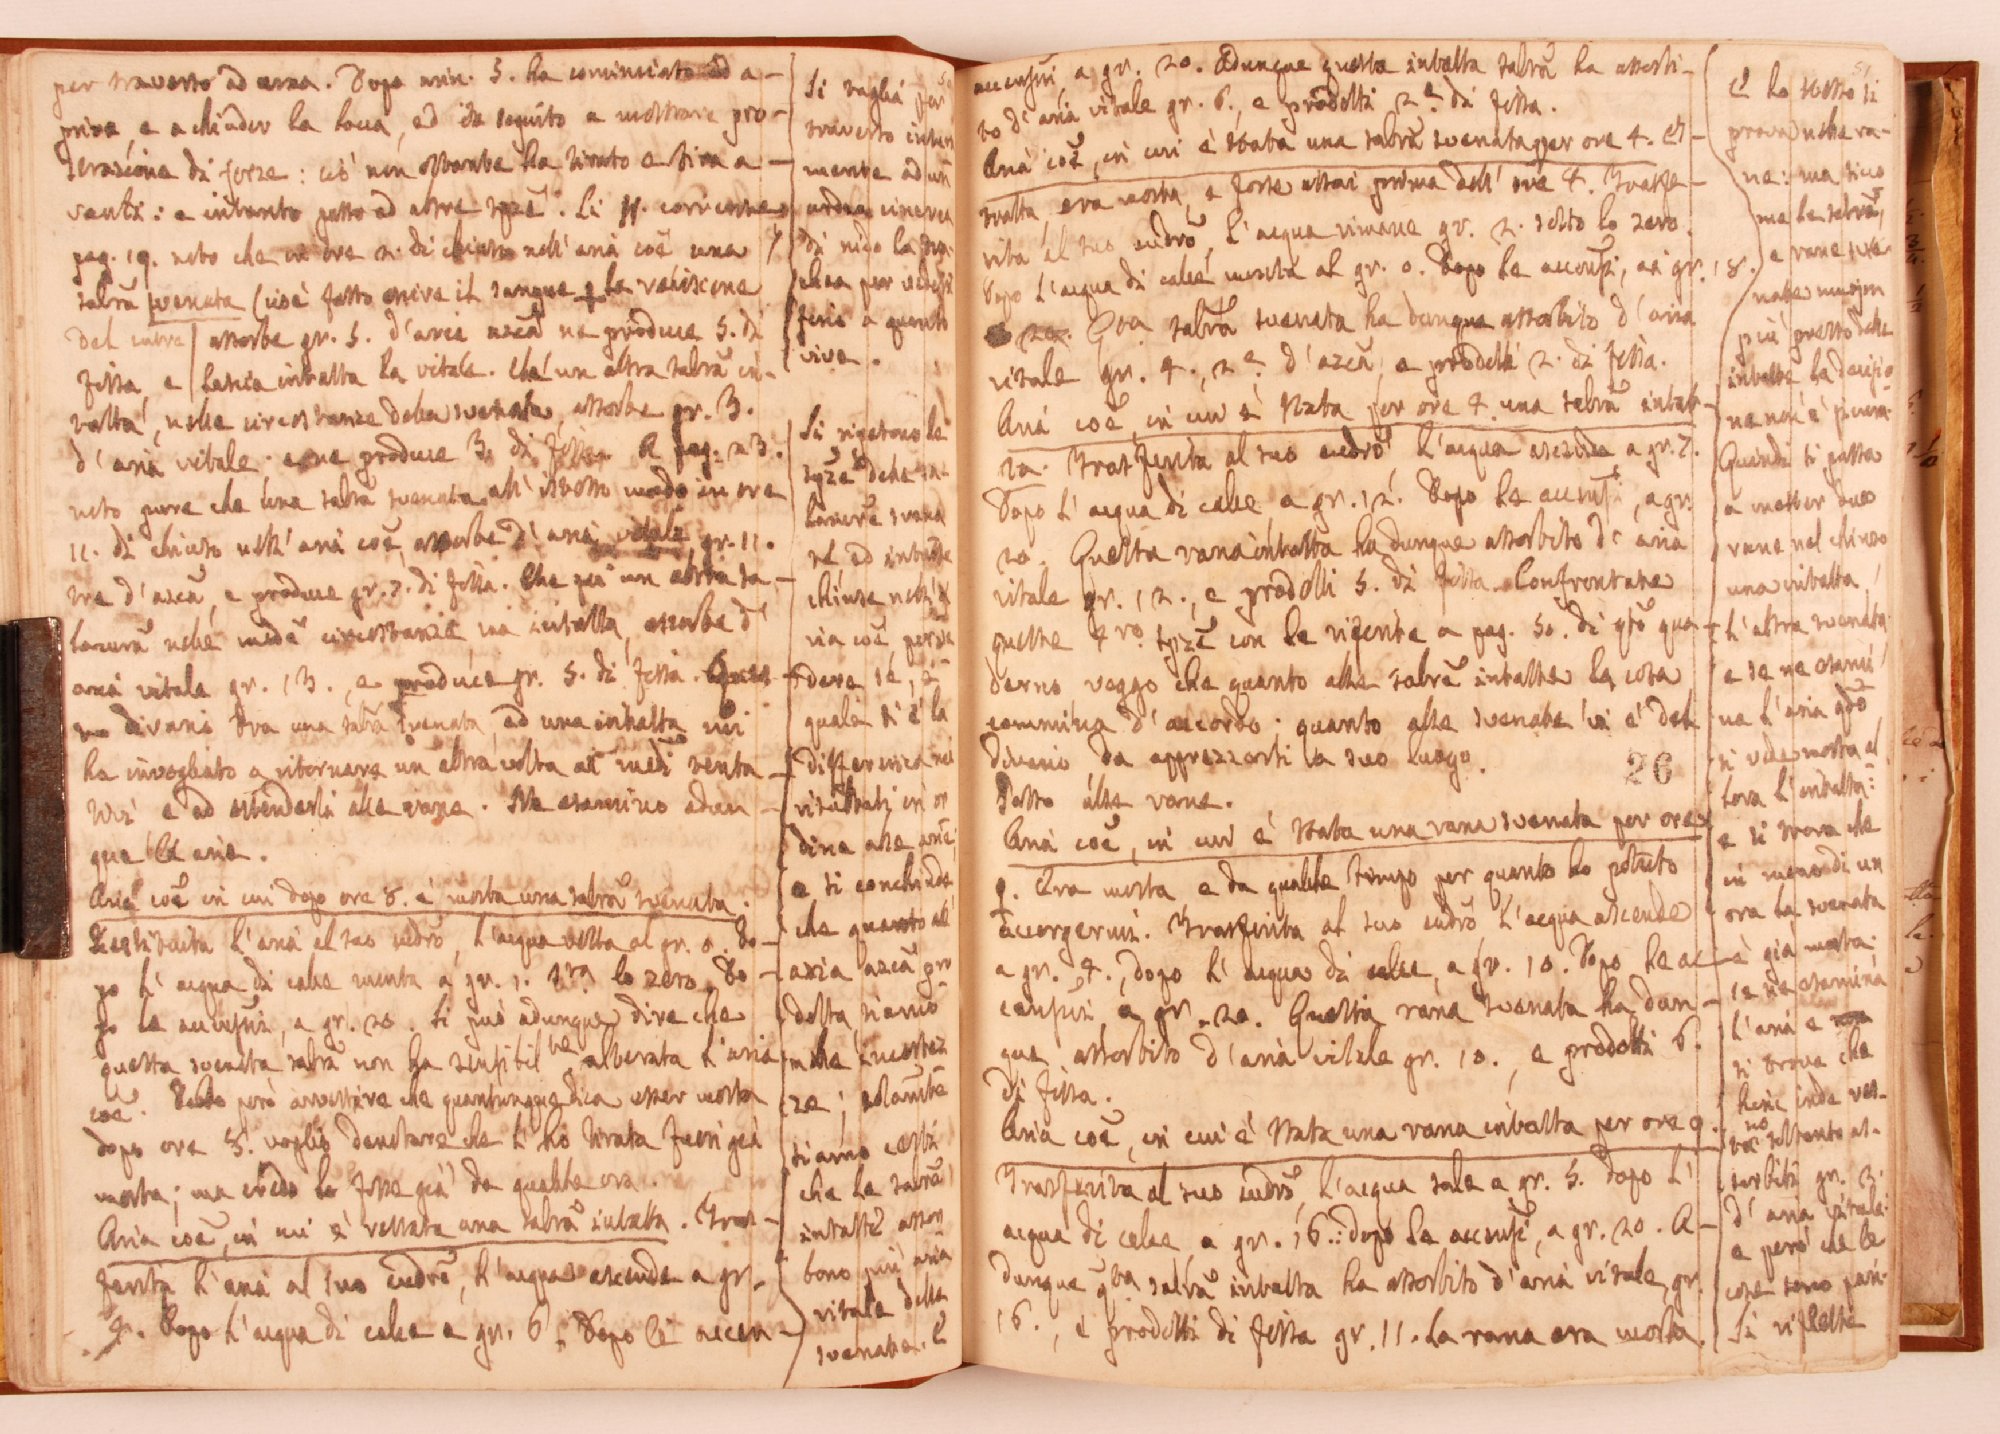 per traverso ad arna. Dopo min. 5. ha cominciato ad a-
prire, e a chiuder la bocca, ed in seguito a mostrare pro-
strazione di forze: ciò non ostante ha tirato e tira a-
vanti: e intanto passo ad altre spze. Li corrente
pag. 19. noto che in ore 2. di chiuso nell'aria coe una
salama svenata (cioè fatto uscire il sangue la recisione
del cuore) assorbe gr. 5. d'aria azca ne produce 5. di
fissa, e lascia intatta la vitale. Che un altra salama in-
tatta, nelle circostanze della svenata, assorbe gr. 3.
d'aria vitale e ne produce 3. di fissa. A pag. 23.
noto pure che una salama svenata all'istesso modo in ore
11. di chiuso nell'aria coe, assorbe d'aria vitale gr. 11.
tre d'azca, e produce gr. 7. di fissa. Che poi un altra sa-
lamra nelle mede circostanze, ma intatta, assorbe d'
aria vitale gr. 13., e produce gr. 5. di fissa. Questo
divario tra una salama svenata, ad una intatta mi
ha invogliato a ritornare un altra volta ai medi tenta-
tivi e ad estenderli alle rane. Ne esamino adun-
que le arie.
Aria coe in cui dopo ore 8. è morta una salama svenata.
Restituita l'aria al suo cilindro, l'acqua resta al gr. 0. Do-
po l'acqua di calce monta a gr. 1. sopra lo zero. Do-
po le accensioni, a gr. 20. Si può adunque dire che
questa svenata salama non ha sensibilte alterata l'aria
coe. Debbo però avvertire che quantunque dica esser morta
dopo ore 8. voglio denotare che l'ho tirata fuori già
morta; ma credo lo fosse già da qualche ora.
Aria coe, in cui è restata una salama intatta. Tras-
ferita l'aria al suo cilindro, l'acqua ascende a gr.
4. Dopo l'acqua di calce a gr. 6. Dopo le accen-
Si taglia per
traverso
mente ad un
vive.
Si ripetono le
spze delle sa-
lamre svena
te ed intatte
chiuse nell'a
ria coe per ve
dere se, e
quale si è la
differenza nei
risultati in or
dine alle arie;
e si conchiude
che quanto all'
aria azca pro
dotta, siamo
nelle incertez
ze; solamente
siamo certi
che le salamre
intatte assor
bono più aria
vitale delle
svenate. E
accensioni, a gr. 20. Adunque questa intatta salama ha assorbi-
to d'aria vitale gr. 6., e prodotti 2. di fissa.
Aria coe, in cui è stata una salama svenata per ore 4. Es-
tratta, era morta, e forse assai prima dell'ore 4. Trasfe-
rita al suo cilindro, l'acqua rimane gr. 2. sotto lo zero.
Dopo l'acqua di calce monta al gr. 0. Dopo le accensi, ai gr. 18.
Qta salama svenata ha dunque assorbito d'aria
vitale gr. 4., 2. d'azca, e prodotti 2. di fissa.
Aria coe, in cui è stata per ore 4. una salama intat-
ta. Trasferita al suo cilindro l'acqua ascende a gr. 7.
Dopo l'acqua di calce a gr. 12. Dopo le accensi, a gr.
20. Questa rana intatta ha dunque assorbito d'aria
vitale gr. 12., e prodotti 5. di fissa. Confrontate
queste 4ro. spze con le riferite a pag. 50. di qto qua-
derno veggo che quanto alle salamre intatte la cosa
cammina d'accordo: quanto alle svenate vi è del
divario da apprezzarsi a suo luogo.
Passo alle rane.
26
Aria coe, in cui è stata una rana svenata per ore
9. Era morta e da qualche tempo per quanto ho potuto
accorgermi. Trasferita al suo cilindro l'acqua ascende
a gr. 4., dopo l'acqua di calce, a gr. 10. Dopo le ac-
censioni a gr. 20. Questa rana svenata ha dun-
que assorbito d'aria vitale gr. 10., e prodotti 6.
di fissa.
Aria coe, in cui è stata una rana intatta per ore 9.
Trasferita al suo cilindro, l'acqua sale a gr. 5. dopo l'
acqua di calce, a gr. 16.: dopo le accensi, a gr. 20. A-
dunque qta salama intatta ha assorbito d'aria vitale gr.
16., e prodotti di fissa gr. 11. La rana era morta.
E lo stesso si
prova nelle ra-
ne: ma sicco
me le salamre,
e rane sve-
nate muojon
più presto delle
intatte la decisio
ne non è sicura.
Quindi si passa
a metter due
rane nel chiuso
una intatta,
l'altra svenata
e se ne esami
na l'aria qdo
si vede morta
l'intatta:
e si trova che
in meno di un
ora la svenata
è già morta.
Se ne esamina
l'aria e
si trova che
ha
soltanto as-
sorbiti gr. 3.
d'aria vitale:
e però che le
cose sono pari.
Si riflette